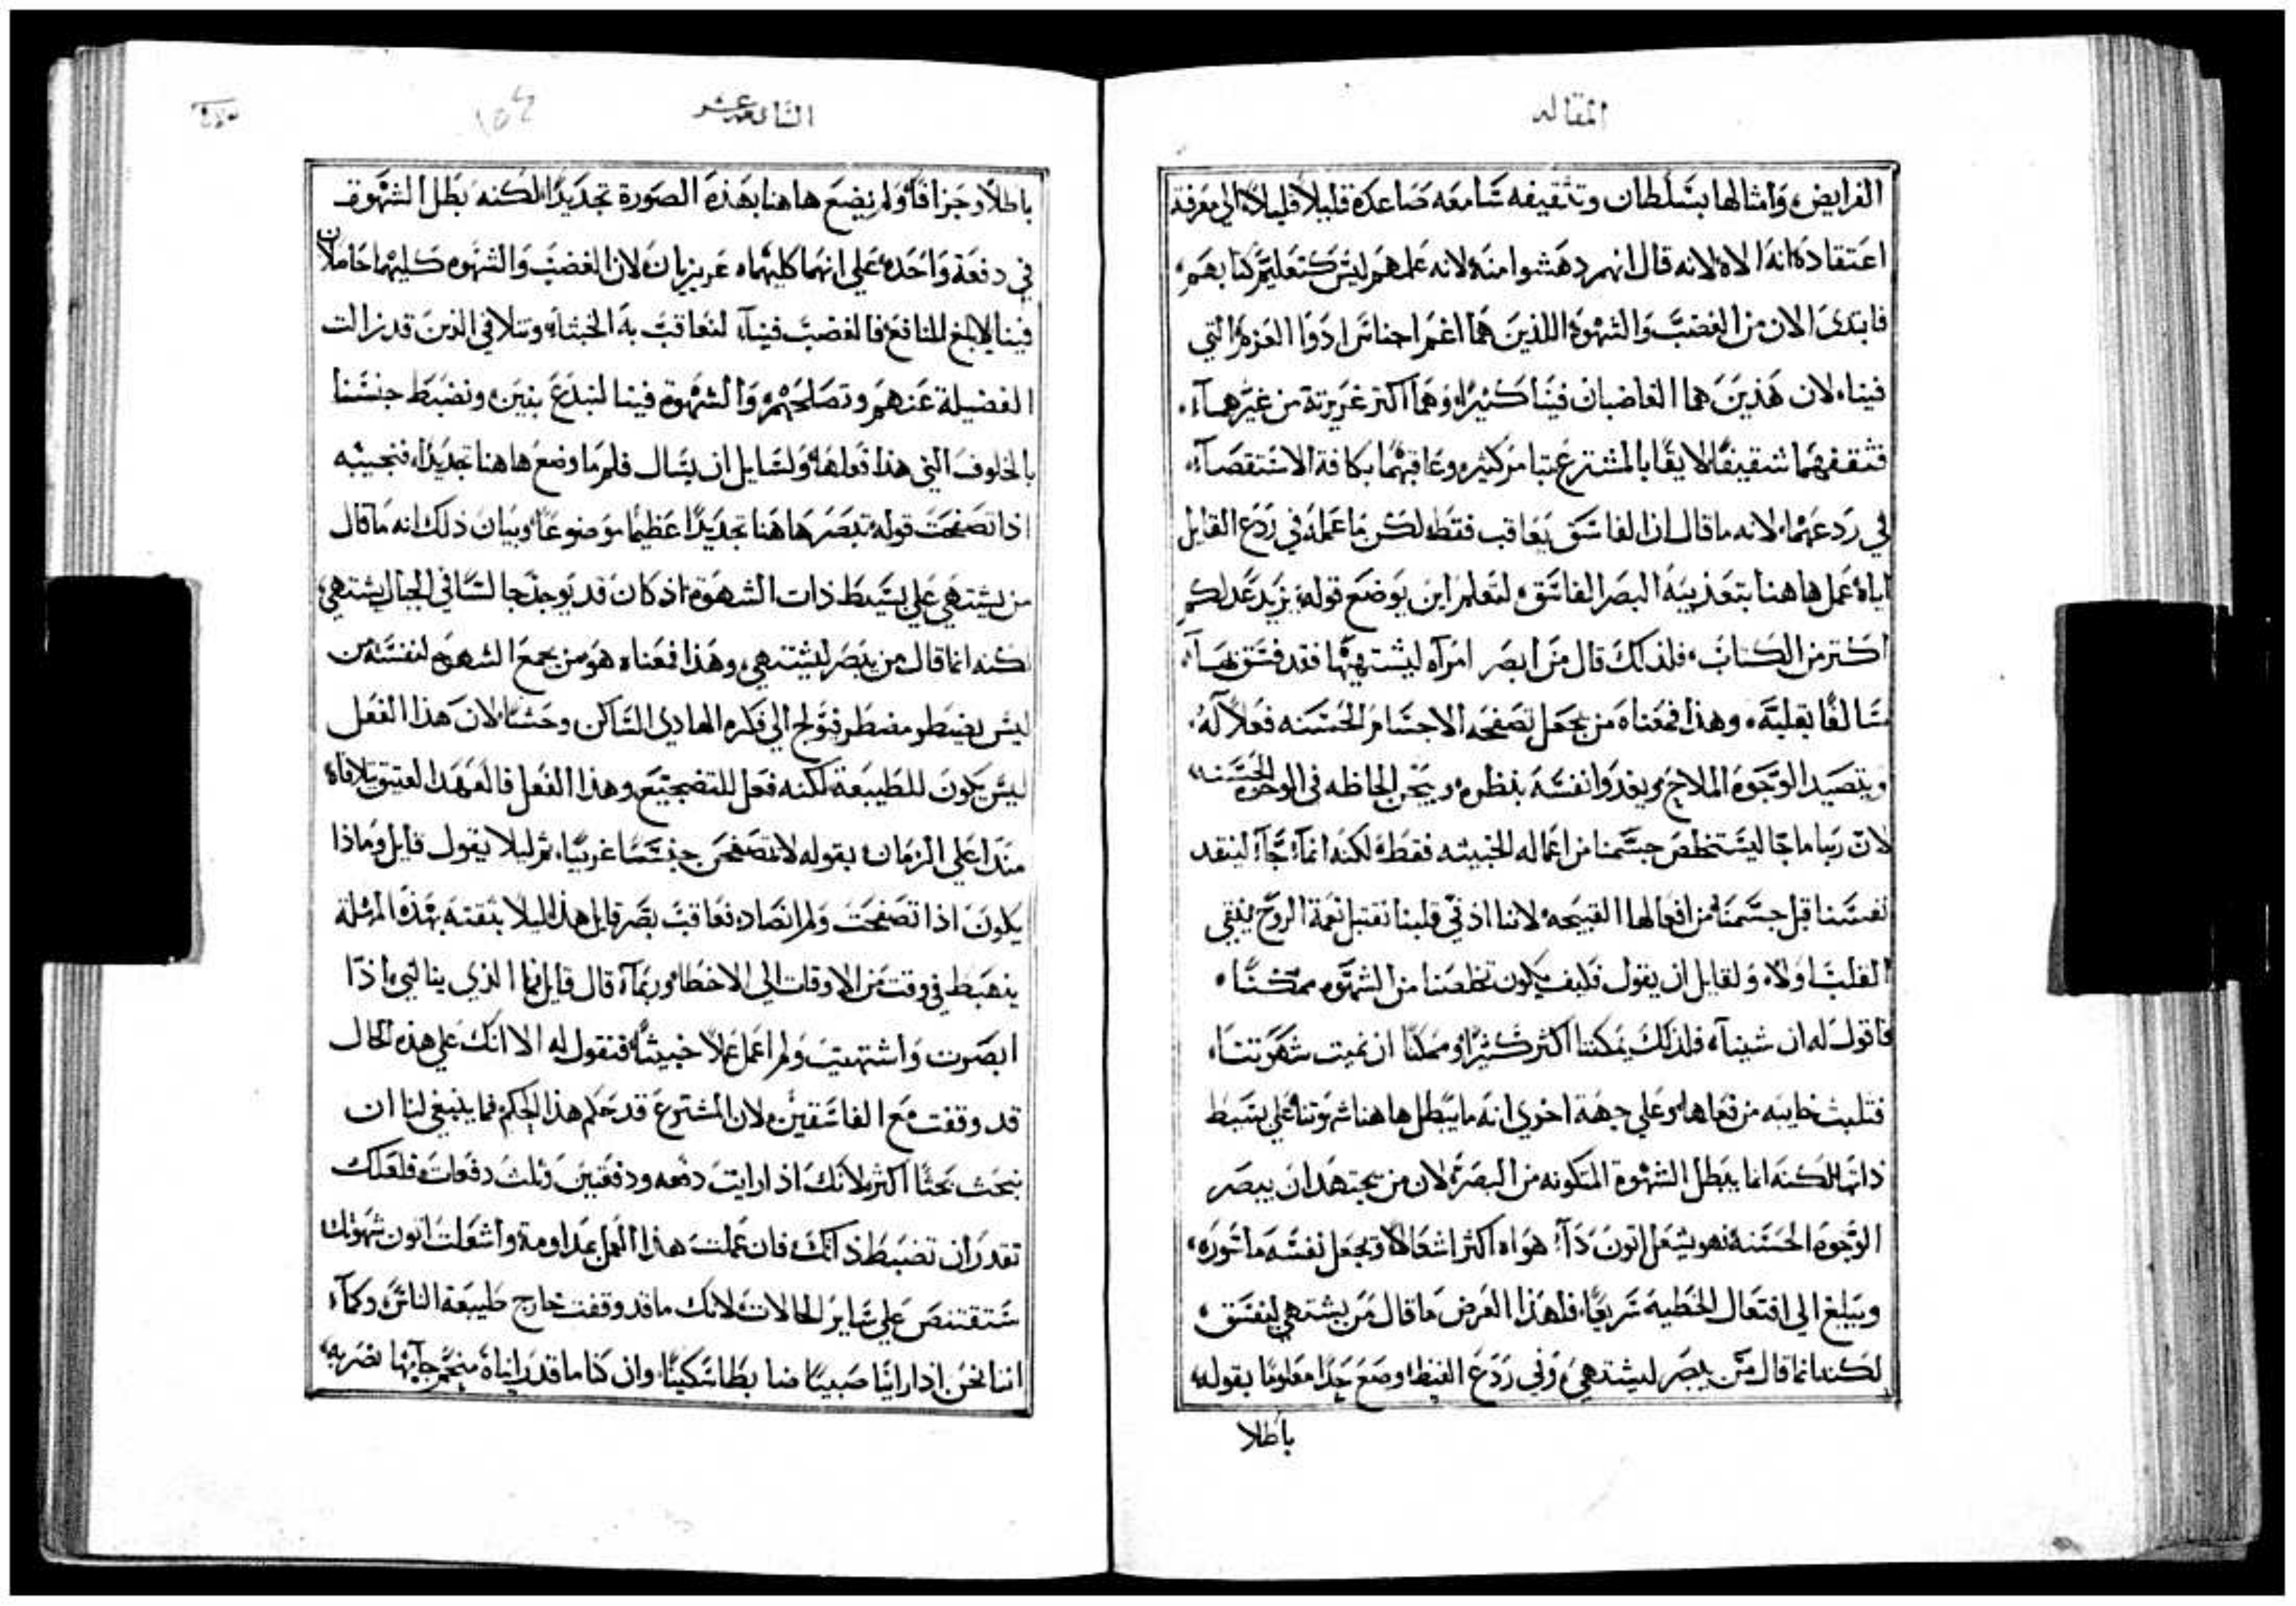 المقاله
الفرايض وامثالها بسلطان وتثقيفه سامعه صاعده قليلا قليلا الي معرفة
اعتقاده انه الاه لانه قال انهم دهشوا منه لانه علمهم ليس كتعليم كتابهم
فابتدى الان من الغضب والشهوة اللذين هما اعم اجناس ادوا الغزة التي
فينا لان هذين هما الغاضبان فينا كثيرا وهما اكثر غريزية من غيرهما
فثقفهما تثقيفا لايقا بالمشترع عتبا من كثير وعاقبهما بكافة الاستقصاء
في ردعهما لانه ما قال ان الفاسق يعاقب فقط لكن ما عمله في ردع القايل
اياه عمل هاهنا بتعذيبه البصر الفاسق لتعلم اين يوضع قوله يزيد عدلكم
اكثر من الكتاب فلذلك قال من ابصر امرآه ليشتهيها فقد فسق بها
سالفا بقلبه وهذا فمعناه من يجعل تصفحه الاجسام الحسنه فعلا له
ويتصيد الوجوه الملاح ويغدوا نفسه بنظره ويمحن الحاظه فى الوجوه الحسنه
لان ربنا ما جا ليستخلص جسمنا من اعماله الخبيثه فقط لكنه انما جآ لينقد
نفسنا قبل جسمنا من افعالها القبيحه لاننا اذ في قلبنا نقتبل نعمة الروح ينقي
القلب اولا ولقايل ان يقول فكيف يكون تخلصنا من الشهوه ممكنا
فاقول له ان شينآ فلذلك يمكننا اكثر كثيرا وممكنا ان نميت شهوتنا
فتلبث خايبه من فعاها وعلي جهة اخري انه ما يبطل هاهنا شهوتنا علي بسيط
ذاتها لكنه انما يبطل الشهوة المتكونه من البصر لان من يجتهد ان يبصر
الوجوه الحسنه فهو يشعل اتون دآء هواه اكثر اشعالا ويجعل نفسه ماسوره
ويبلغ الي افتعال الخطيه سريعا فلهذا الغرض ما قال من يشتهي ليفسق
لكنه انما قال من يبصر ليشتهي وفي ردع الغيظ وضع حدا معلوما بقوله
باطلا
الثامنه عشر
باطلا وجزافا ولم يضع هاهنا بهذه الصورة تجديدا لكنه بطل الشهوة
في دفعة واحده علي انهما كليهما غريزيان لان الغضب والشهوه كليهما حاملان
فينا لابلغ المنافع فالغضب فينآ لنعاقب به الخبثآ ونتلافي الذين قد زالت
الفضيلة عنهم وتصلحهم والشهوة فينا لنبدع بنين ونضبط جنسنا
بالخلوف التي هذا فعلها ولسايل ان يسال فلم ما وضع هاهنا تجديدا فنجيبه
اذا تصفحت قوله تبصر هاهنا تجديدا عظيما موضوعا وبيان ذلك انه ما قال
من يشتهي علي بسيط ذات الشهوة اذ كان قد يوجد جالسا في الجبال يشتهي
لكنه انما قال من يبصر ليشتهي وهذا فمعناه هو من يجمع الشهوة لنفسه من
ليس يضطره مضطر فيولج الي فكره الهادي الساكن وحشا لان هذا الفعل
ليس يكون للطبيعة لكنه فعل للتضجيع وهذا الفعل فالعهد العتيق تلافاه
منذ اعلي الزمان بقوله لا تتصفحن جسما غريبا ثم ليلا يقول قايل وماذا
يكون اذا تصفحت ولم انصاد فعاقب بصر قايل هذا ليلا بثقته بهذه المهلة
ينهبط في وقت من الاوقات الي الاخطا وربمآ قال قايل فما الذي ينالني اذا
ابصرت واشتهيت ولم اعمل عملا خبيثا فنقول له الا انك علي هذه الحال
قد وقفت مع الفاسقين لان المشترع قد حكم هذا الحكم فما ينبغي لنا ان
نبحث بحثا اكثر لانك اذا رايت دفعه ودفعتين وثلث دفعات فلعلك
تقدر ان تضبط ذاتك فان عملت هذا العمل بمداومة واشعلت اتون شهوتك
ستقتنص علي ساير الحالات لانك ما قد وقفت خارج طبيعة الناس وكمآ
اننا نحن اذا راينا صبيا ضابطا سكينا وان كنا ما قد رايناه منجرحآ بها نضربه